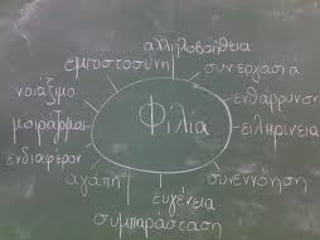 αλληλοβοήθεια
εμπιστοσύνη
συνεργασία
νοιάξιμο
ενθάρρυνση
μοιράζομαι
Φιλία
ειλικρίνεια
ενδιαφέρον
αγάπη
συνεννόηση
ευγένεια
συμπαράσταση